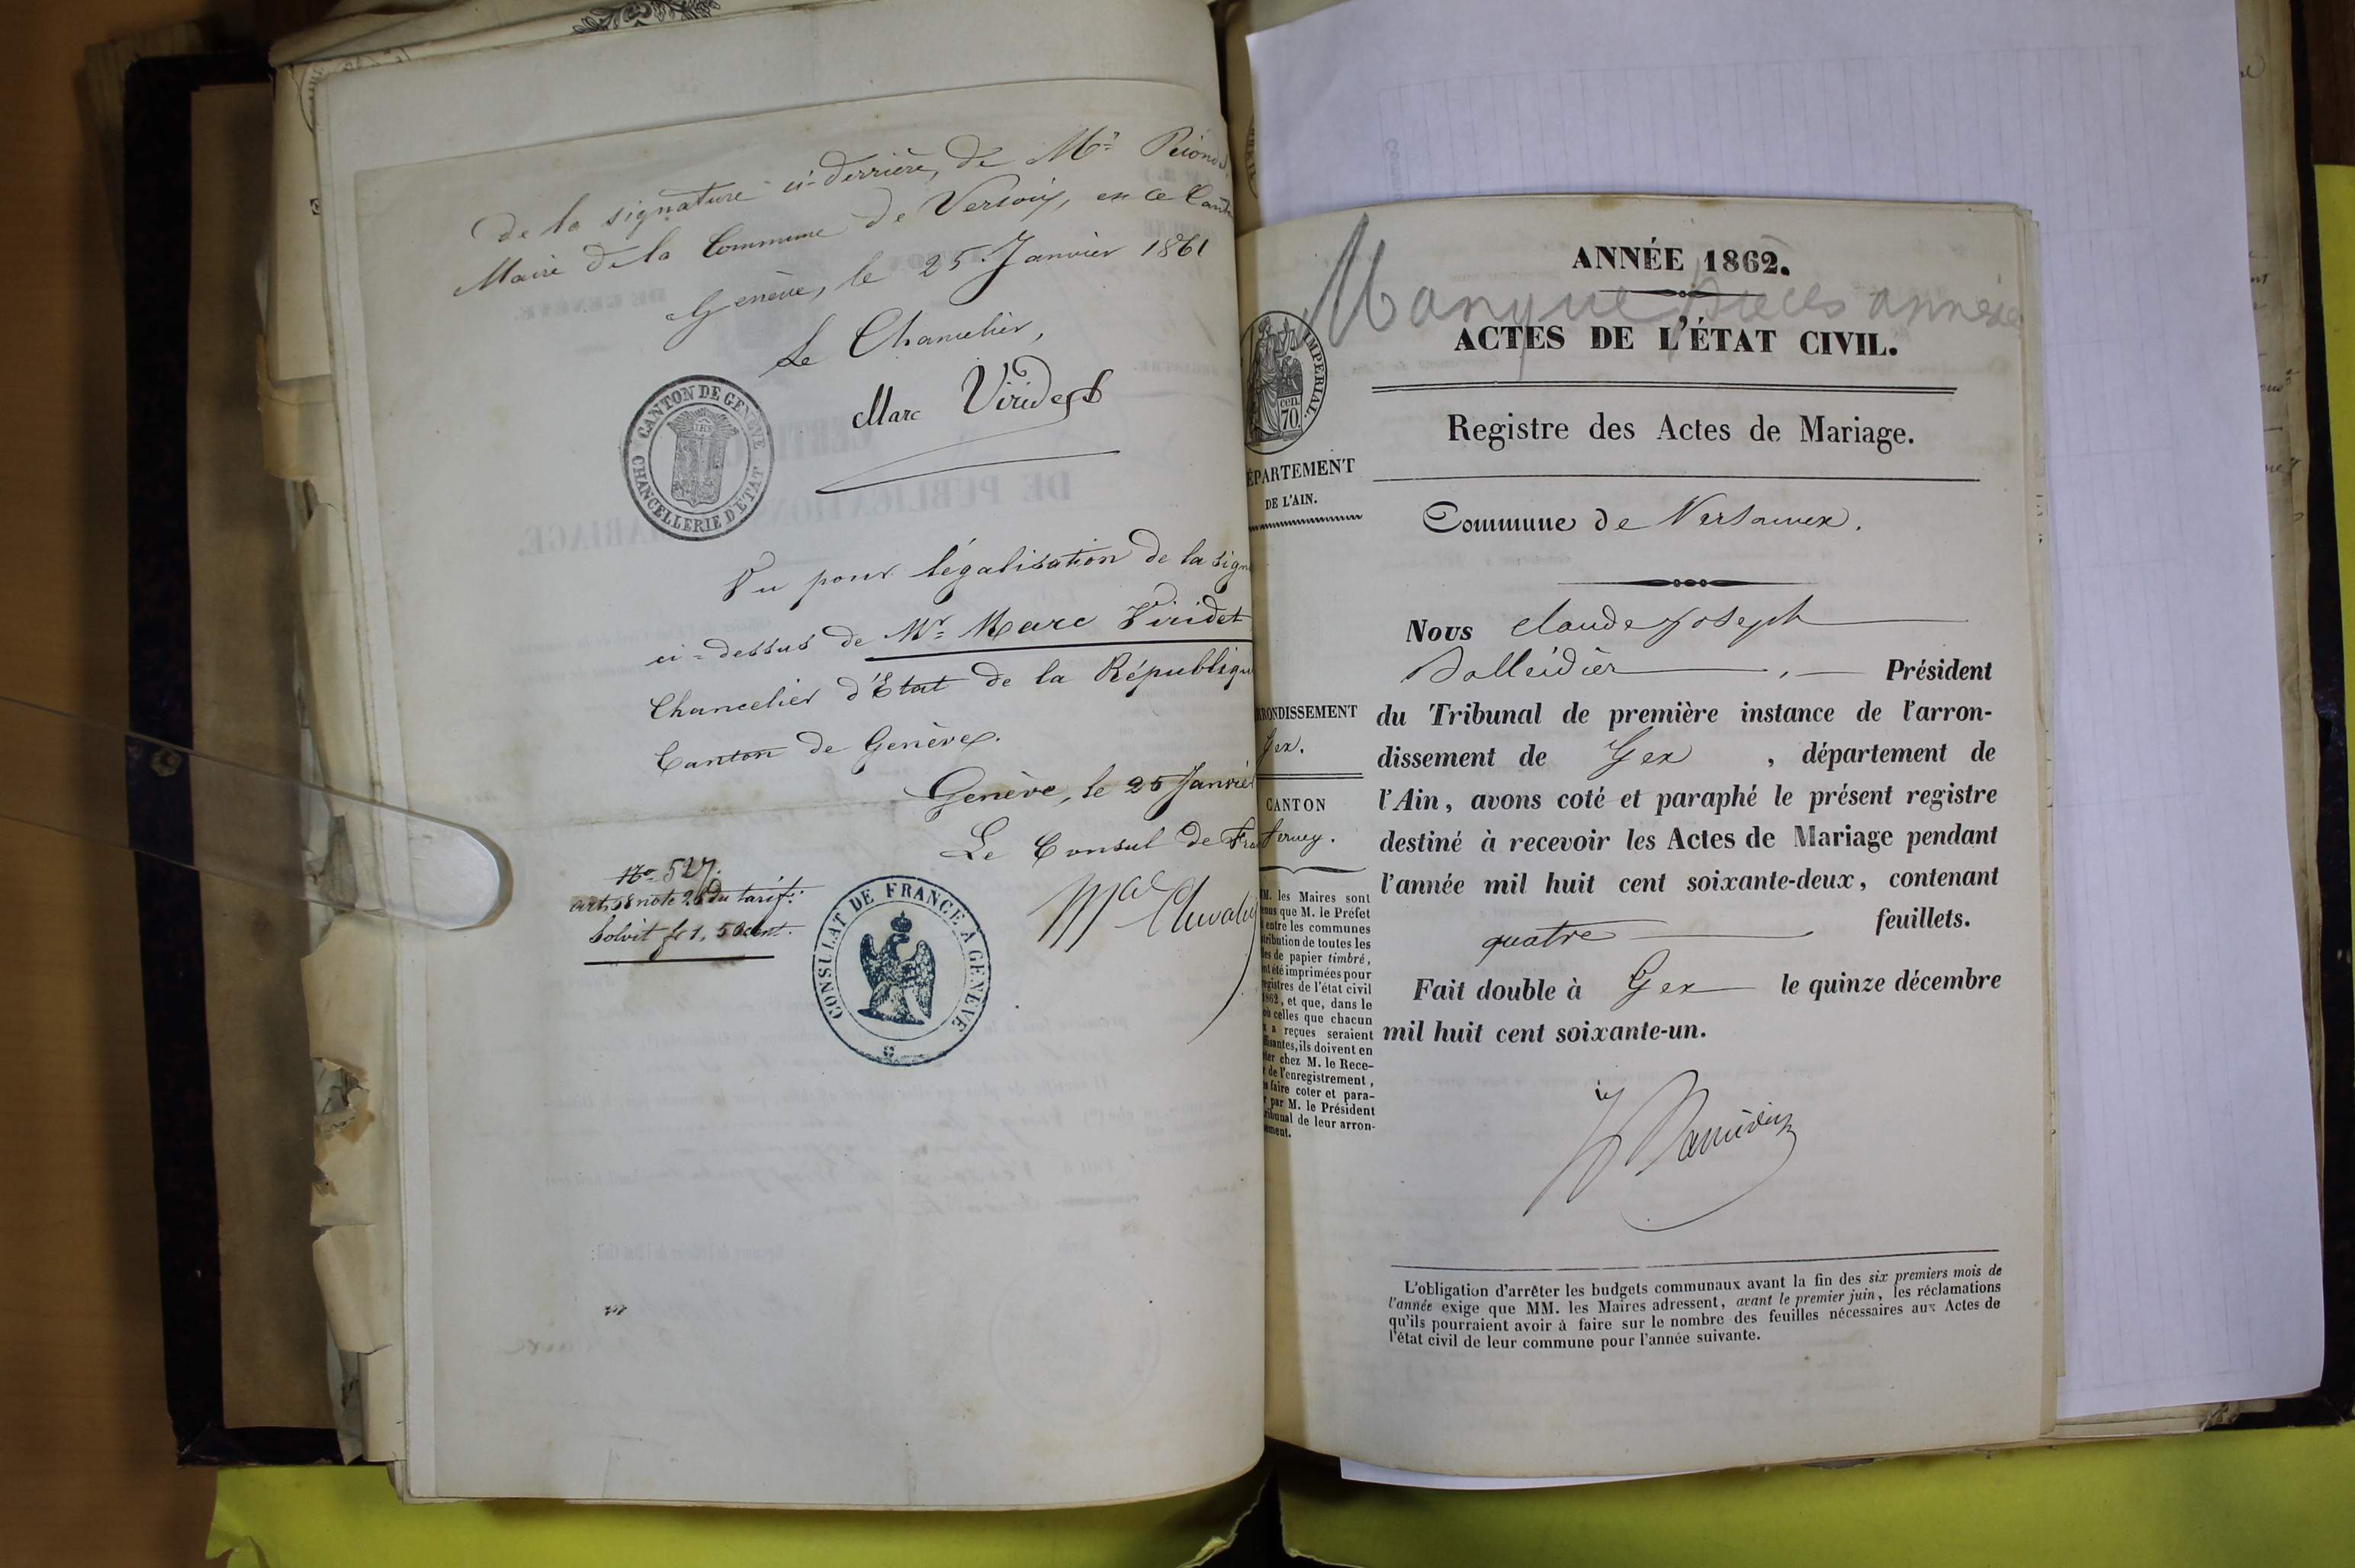 de la signature ci-derrière, de Mr
Maire de la Commune de Versoix, en ce Cant
Genève, le 25 Janvier 1861
Le Chancelier,
Marc Viridet
CANTON DE GENEVE
CHANCELLERIE D'ETAT
Vu pour légalisation de la sign
ci-dessus de Mr Marc Viridet
Chancelier d'Etat de la Républiqu
Canton de Genève.
Genève, le 25 Janvie
Le Consul de Fra
No 527.
art. 58 note 26 du tarif:
Solvit fr 1, 50 cent.
CONSULAT DE FRANCE A GENEVE
ANNÉE 1862.
Manque pièces annexes
ACTES DE L'ÉTAT CIVIL.
IMPÉRIAL.
cen.
70.
Registre des Actes de Mariage.
ÉPARTEMENT
DE L'AIN.
Commune de Versonnex.
Nous Claude Joseph
Président
du Tribunal de première instance de l'arron-
dissement de Gex , département de
l'Ain, avons coté et paraphé le présent registre
destiné à recevoir les Actes de Mariage pendant
l'année mil huit cent soixante-deux, contenant
quatre feuillets.
Fait double à Gex le quinze décembre
mil huit cent soixante-un.
RRONDISSEMENT
Gex.
CANTON
Ferney.
MM. les Maires sont
enus que M. le Préfet
entre les communes
tribution de toutes les
les de papier timbré,
nt été imprimées pour
egistres de l'état civil
1862, et que, dans le
où celles que chacun
x a reçues seraient
ffisantes, ils doivent en
ter chez M. le Rece-
r de l'enregistrement,
s faire coter et para-
r par M. le Président
ribunal de leur arron-
ement.
L'obligation d'arrêter les budgets communaux avant la fin des six premiers mois de
l'année exige que MM. les Maires adressent, avant le premier juin, les réclamations
qu'ils pourraient avoir à faire sur le nombre des feuilles nécessaires aux Actes de
l'état civil de leur commune pour l'année suivante.